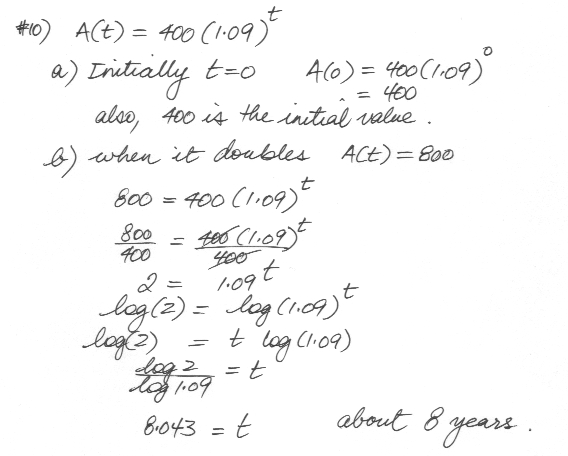 #10) A(t) = 400 (1.09)^t
a) Initially t=0 A(0) = 400(1.09)^0
= 400
also, 400 is the initial value.
b) when it doubles A(t) = 800
800 = 400 (1.09)^t
800/400 = 400 (1.09)^t/400
2 = 1.09^t
log(2) = log(1.09)^t
log(2) = t log(1.09)
log 2/log 1.09 = t
8.043 = t about 8 years.